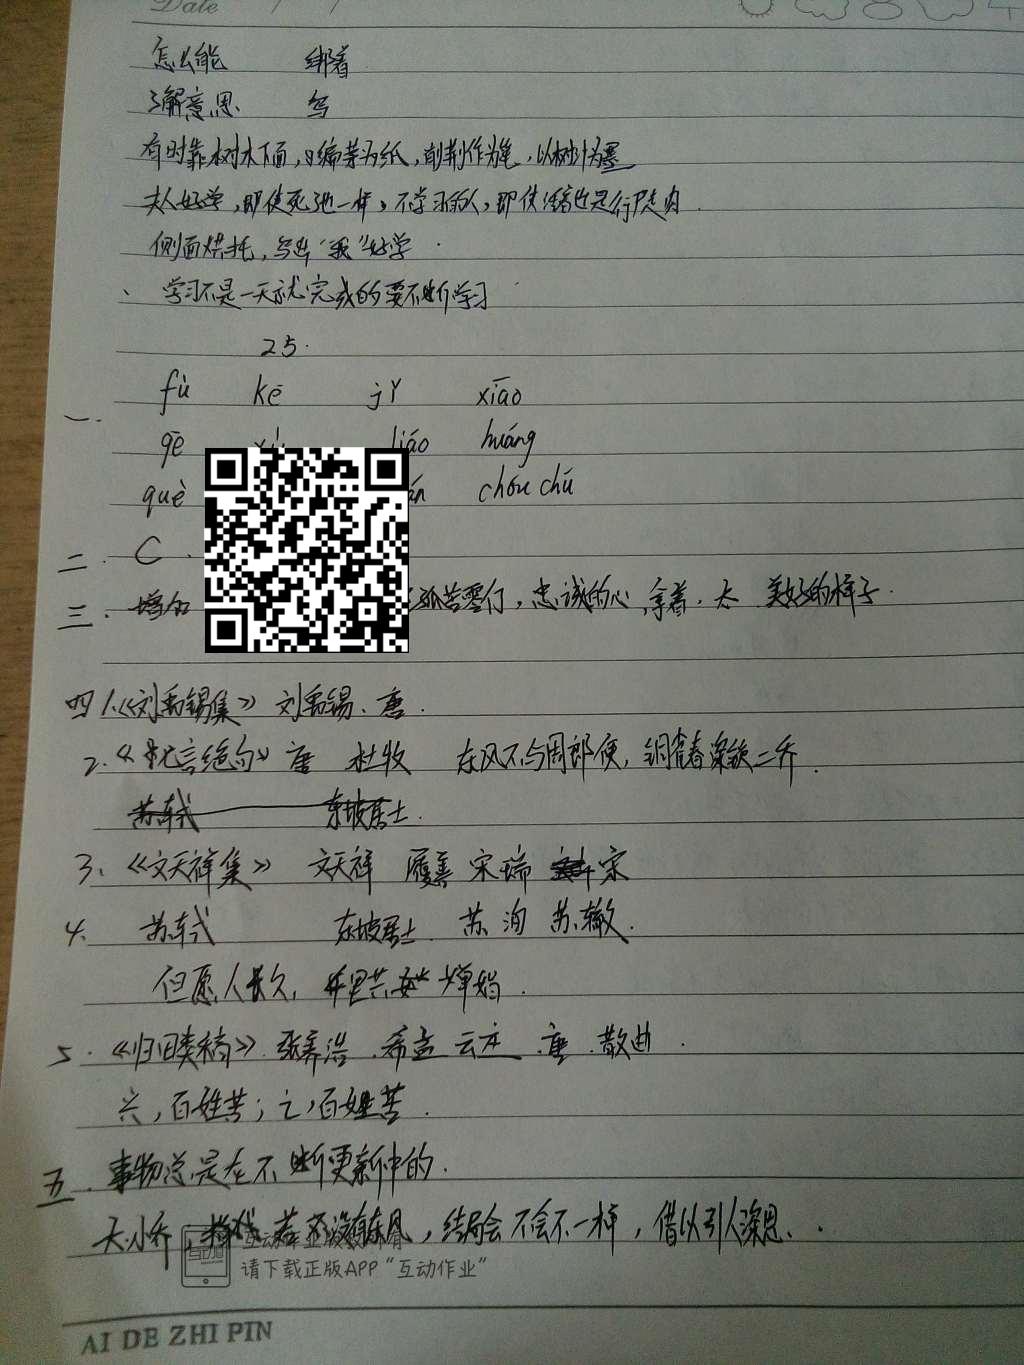 Date / /
怎么能 绑着
了解意思 写
有时靠树木下面,编茅为纸,削荆作为笔,以树汁为墨
夫人好学,即使死也一样,不学习的人,即使活着也是行尸走肉.
侧面烘托,写出“我”好学.
、学习不是一天就完成的要不断学习
25.
一. fù kē jǐ xiāo
gē liáo huáng
què chóu chú
二. C.
三. 增加 孤苦零仃,忠诚的心,拿着.太 美好的样子.
四1.《刘禹锡集》 刘禹锡、唐.
2.《七言绝句》唐 杜牧 东风不与周郎便,铜雀春深锁二乔.
苏轼 东坡居士.
3.《文天祥集》 文天祥 履善 宋瑞 宋
4. 苏轼 东坡居士. 苏洵 苏辙.
但愿人长久,千里共婵娟.
5.《归田类稿》.张养浩.希孟 云庄.唐.散曲.
兴,百姓苦;亡,百姓苦.
五.事物总是在不断更新中的.
大小乔, 若 没有东风,结局会不会不一样,借以引人深思..
请下载正版APP“互动作业”
AI DE ZHI PIN